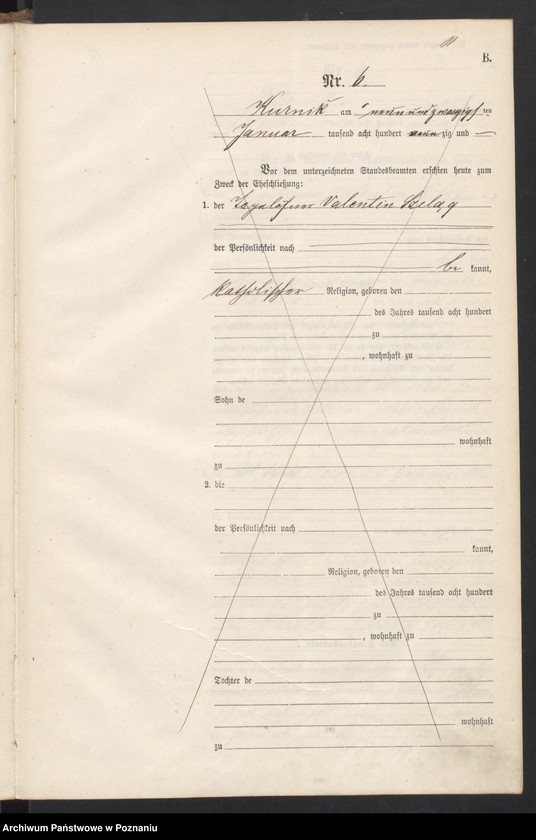 11
B.
Nr. 6.
Kurnik am neunundzwanzigsten
Januar tausend acht hundert neunzig und —
Vor dem unterzeichneten Standesbeamten erschien heute zum
Zweck der Eheschließung:
1. der Tagelöhner Valentin Szeląg
der Persönlichkeit nach
be kannt,
katholischer Religion, geboren den
des Jahres tausend acht hundert
zu
, wohnhaft zu
Sohn de
wohnhaft
zu
2. die
der Persönlichkeit nach
kannt,
Religion, geboren den
des Jahres tausend acht hundert
zu
, wohnhaft zu
Tochter de
wohnhaft
zu
Archiwum Państwowe w Poznaniu